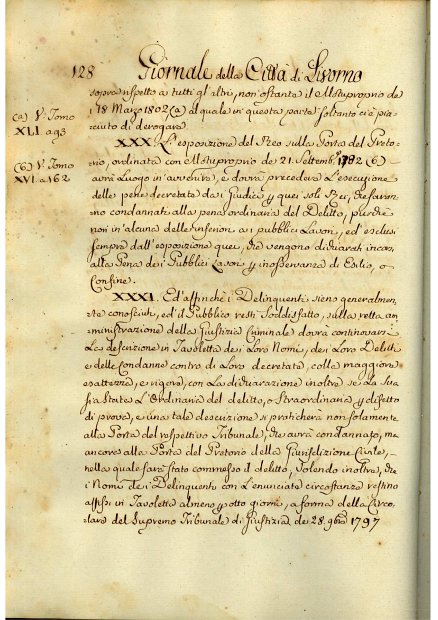 128 Giornale della Città di Livorno
sopra rispetto a tutti gl'altri, non ostante il Motuproprio de
18 Marzo 1802, (a) al quale in questa parte soltanto ci è pia-
ciuto di derogare.
(a) V. Tomo
XLI. a 93
XXX. L'esposizione del Reo sulla Porta del Preto-
rio, ordinata con Motuproprio de 21. Settemb. 1782 (b)
avrà Luogo in avvenire, e dovrà precedere l'esecuzione
(b) V. Tomo
XVI. a 162
delle pene decretate dai Giudici p quei soli Rei, che saran-
no condannati alla pena ordinaria del Delitto, purchè
non in alcuna delle inferiori ai pubblici Lavori, ed esclusi
sempre dall'esposizione quei, che vengono dichiarati incorsi
alla Pena dei Pubblici Lavori p inosservanza di Esilio, o
Confine.
XXXI. Ed affinchè i Delinquenti sieno generalmen-
te conosciuti, ed il Pubblico resti soddisfatto, sulla retta am-
ministrazione della Giustizia Criminale dovrà continuarsi
La descrizione in Tavoletta dei Loro Nomi, dei Loro Delitti
e delle Condanne contro di Loro decretate, colla maggiore
esattezza, e rigore, con La dichiarazione inoltre se La stes-
sia stata L'Ordinaria del delitto, o straordinaria p difetto
di prove, e una tale descrizione si praticherà non solamente
alla Porta del respettivo Tribunale, che avrà condannato, ma
ancora alla Porta del Pretorio della Giurisdizione Civile,
nella quale sarà stato commesso il delitto, Volendo inoltre, che
i Nomi dei Delinquenti con L'enunciate circostanze restino
affissi in Tavoletta almeno p otto giorni, a forma della Circo-
lare del Supremo Tribunale di Giustizia de 28. 9bre 1797